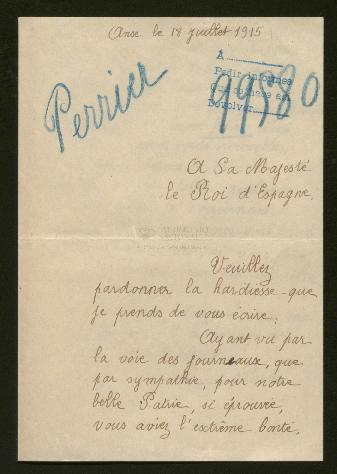 Anse le 18 Juillet 1915
A
Pedir informes
Devolver
99580
Perrier
A Sa Majesté
le Roi d'Espagne.
Veuillez
pardonner la hardiesse que
je prends de vous écrire.
Ayant vu par
la voie des journeaux, que
par sympathie, pour notre
belle Patrie, si éprouvée,
vous aviez l'extrême bonté,